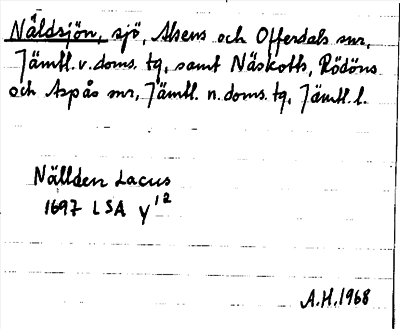 Näldsjön, sjö, Alsens och Offerdals snr,
Jämtl. v. doms. tg, samt Näskotts, Rödöns
och Aspås snr, Jämtl. n. doms. tg, Jämtl. l.
Nällden Lacus
1697 LSA Y12
A.H. 1968